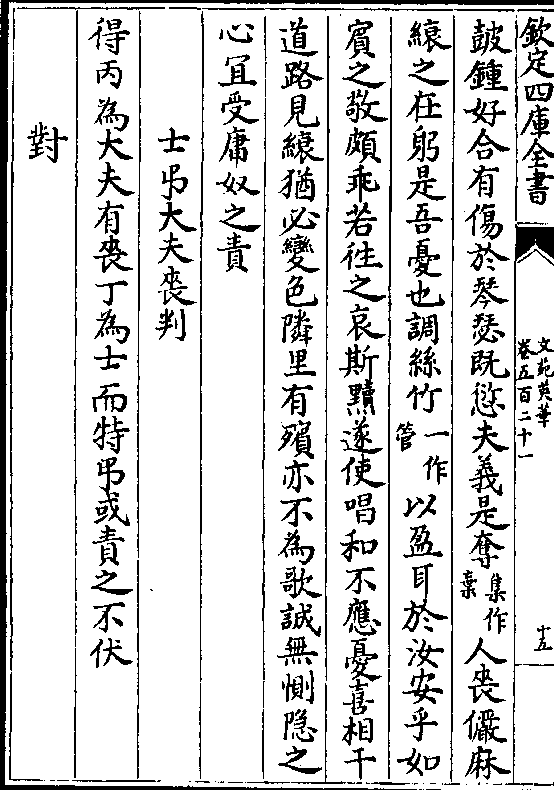 欽定四庫全書
文苑英華
卷五百二十一
十五
鼓鍾好合有傷於琴瑟既愆夫義是奪集作棄人喪儼麻
縗之在躬是吾憂也調絲竹一作管以盈耳於汝安乎如
賓之敬頗乖若徃之哀斯黷遂使唱和不應憂喜相干
道路見縗猶必變色隣里有殯亦不為歌誠無惻隐之
心冝受庸奴之責
士弔大夫喪判
得丙為大夫有喪丁為士而特弔或責之不伏
對